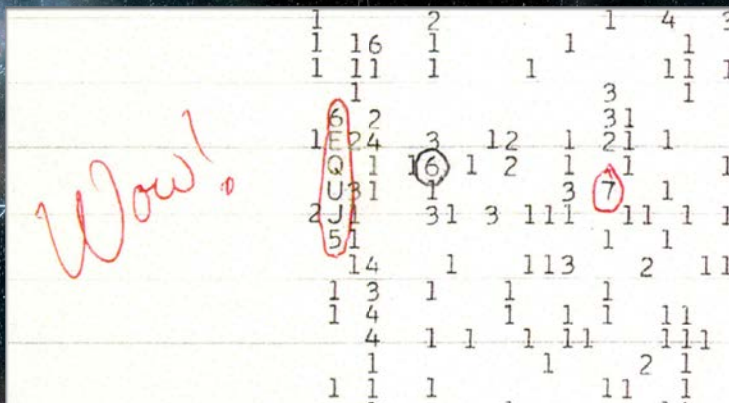 1 2 1 4 3
1 16 1 1 1
1 11 1 1 11 1
1 3 1
6 2 31
1 E24 3 12 1 21 1
Q 1 16 1 2 1 1 1
U31 1 3 7 1
2J1 31 3 111 11 1 1
51 1 1
14 1 113 2 11
1 3 1 1 1
1 4 1 1 1 11
4 1 1 1 11 111
1 1 2 1
1 1 1 11 1
Wow!